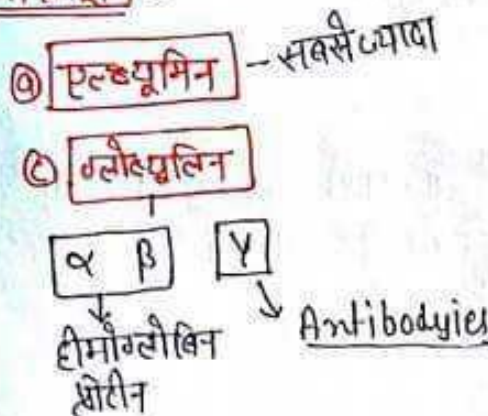 ⓐ एल्ब्यूमिन - सबसे ज्यादा
ⓒ ग्लोब्यूलिन
α β γ
हीमोग्लोबिन Antibodyies
प्रोटीन